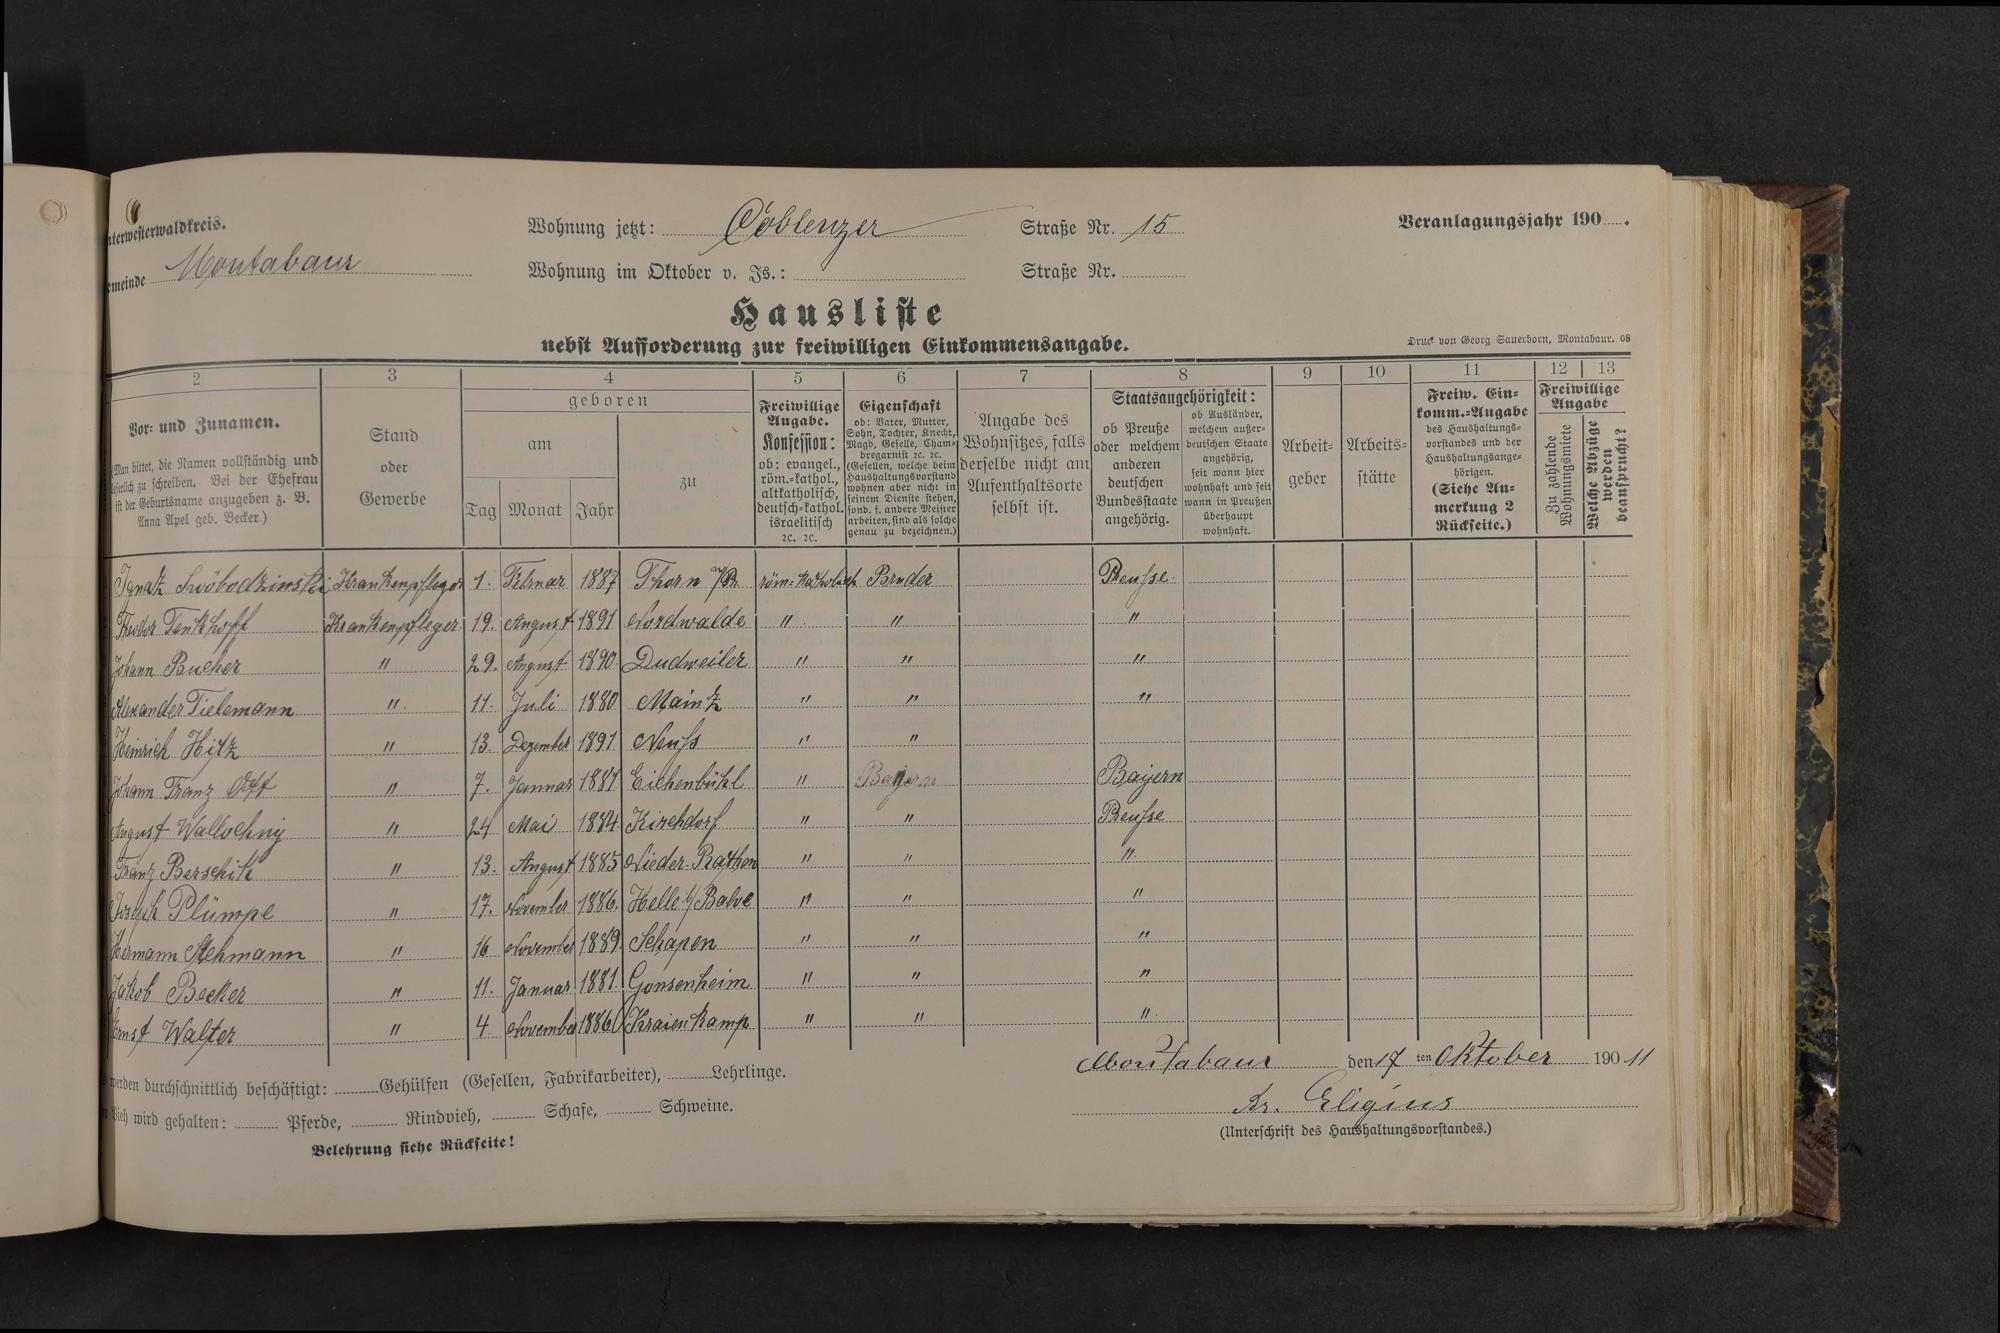 nterwesterwaldkreis.
emeinde Montabaur
Wohnung jetzt: Coblenzer Straße Nr. 15
Wohnung im Oktober v. Js.: Straße Nr.
Veranlagungsjahr 190 .
Hausliste
nebst Aufforderung zur freiwilligen Einkommensangabe.
Druck von Georg Sauerborn, Montabaur. 08
2 3 4 5 6 7 8 9 10 11 12 13
Vor- und Zunamen.
(Man bittet, die Namen vollständig und
leserlich zu schreiben. Bei der Ehefrau
ist der Geburtsname anzugeben z. B.
Anna Apel geb. Becker.)
Stand
oder
Gewerbe
geboren
am
Tag Monat Jahr
zu
Freiwillige
Angabe.
Konfession:
ob: evangel.,
röm.-kathol.,
altkatholisch,
deutsch-kathol.
israelitisch
ꝛc. ꝛc.
Eigenschaft
ob: Vater, Mutter,
Sohn, Tochter, Knecht,
Magd, Geselle, Cham-
bregarnist ꝛc. ꝛc.
(Gesellen, welche beim
Haushaltungsvorstand
wohnen aber nicht in
seinem Dienste stehen,
sond. f. andere Meister
arbeiten, sind als solche
genau zu bezeichnen.)
Angabe des
Wohnsitzes, falls
derselbe nicht am
Aufenthaltsorte
selbst ist.
Staatsangehörigkeit:
ob Preuße
oder welchem
anderen
deutschen
Bundesstaate
angehörig.
ob Ausländer,
welchem außer-
deutschen Staate
angehörig,
seit wann hier
wohnhaft und seit
wann in Preußen
überhaupt
wohnhaft.
Arbeit-
geber
Arbeits-
stätte
Freiw. Ein-
komm.-Angabe
des Haushaltungs-
vorstandes und der
Haushaltungsange-
hörigen.
(Siehe An-
merkung 2
Rückseite.)
Freiwillige
Angabe
Zu zahlende
Wohnungsmiete
Welche Abzüge
werden
beansprucht?
Ignatz Swobodzinski Krankenpfleger 1. Februar 1887 Thorn W/Pr. röm: katholisch Bruder Preusse
Theodor Tenkhoff Krankenpfleger 19. August 1891 Nordwalde " " "
Johann Bucher " 29. August 1890 Dudweiler " " "
Alexander Tielemann " 11. Juli 1880 Mainz " " "
Heinrich Hitz " 13. Dezember 1891 Neuss " "
Johann Franz Ott " 7. Januar 1881 Eichenbühl " Bayern Bayern
August Wallochny " 24 Mai 1884 Kirchdorf " " Preusse
Franz Berschik " 13. August 1885 Nieder-Rathen " " "
Joseph Plümpe " 17. November 1886. Helle b/Balve " " "
Hermann Stehmann " 16 November 1889. Schapen " " "
Jakob Becker " 11. Januar 1881. Gonsenheim " " "
Ernst Walter " 4 November 1886 Kraienkamp " " "
s werden durchschnittlich beschäftigt: Gehülfen (Gesellen, Fabrikarbeiter), Lehrlinge.
Vieh wird gehalten: Pferde, Rindvieh, Schafe, Schweine.
Belehrung siehe Rückseite!
Montabaur den 17 ten Oktober 190 11
Br. Eligius
(Unterschrift des Haushaltungsvorstandes.)